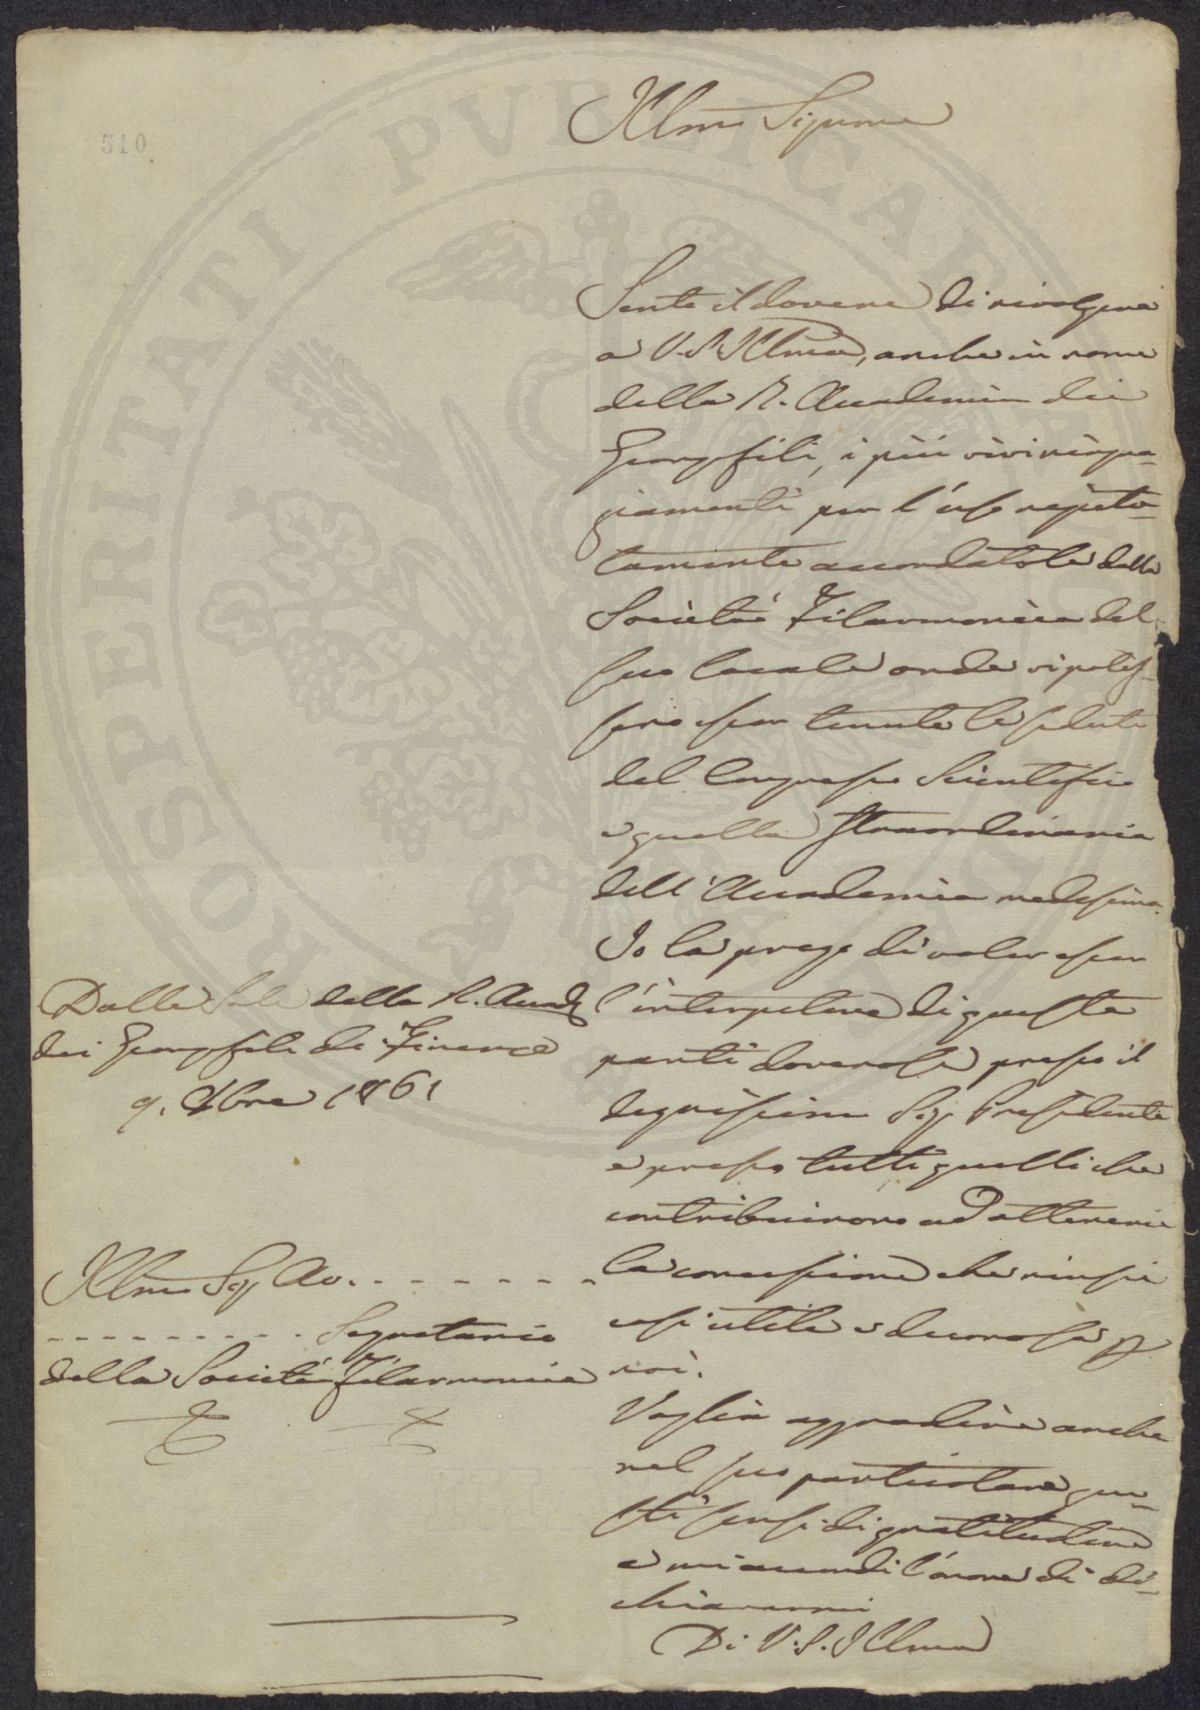 510
Illmo Signore
Sento il dovere di rivolgere
a V. S. Illma, anche in nome
della R. Accademia dei
Georgofili, i più vivi ringra-
ziamenti per l'uso ripeta-
tamente accordatole dalla
Società Filarmonica del
suo locale onde vi potes-
sero esser tenute le sedute
del Congresso Scientifico
e quella straordinaria
dell'Accademia medesima.
Io la prego di voler esser
l'interpetre di queste
parti doverose presso il
degnissimo Sig. Presidente
e presso tutti quelli che
contribuirono ad ottenerci
la concessione che riuscì
così utile e decorosa p
noi.
Voglia aggradire anche
nel suo particolare que-
sti sensi di gratitudine
e mi accordi l'onore di di-
chiararmi
Di V. S. Illma
Dalle Sale della R. Accad.
dei Georgofili di Firenze
9. Xbre 1861
Illmo Sig. Av. - - - - - - -
- - - - - - - - - Segretario
della Società Filarmonica
PROSPERITATI PVBLICAE